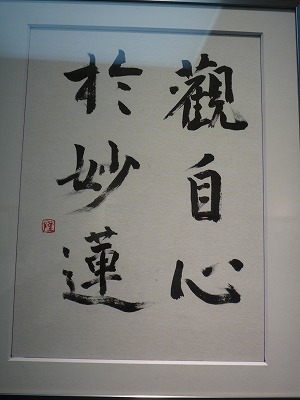 觀自心
於妙蓮